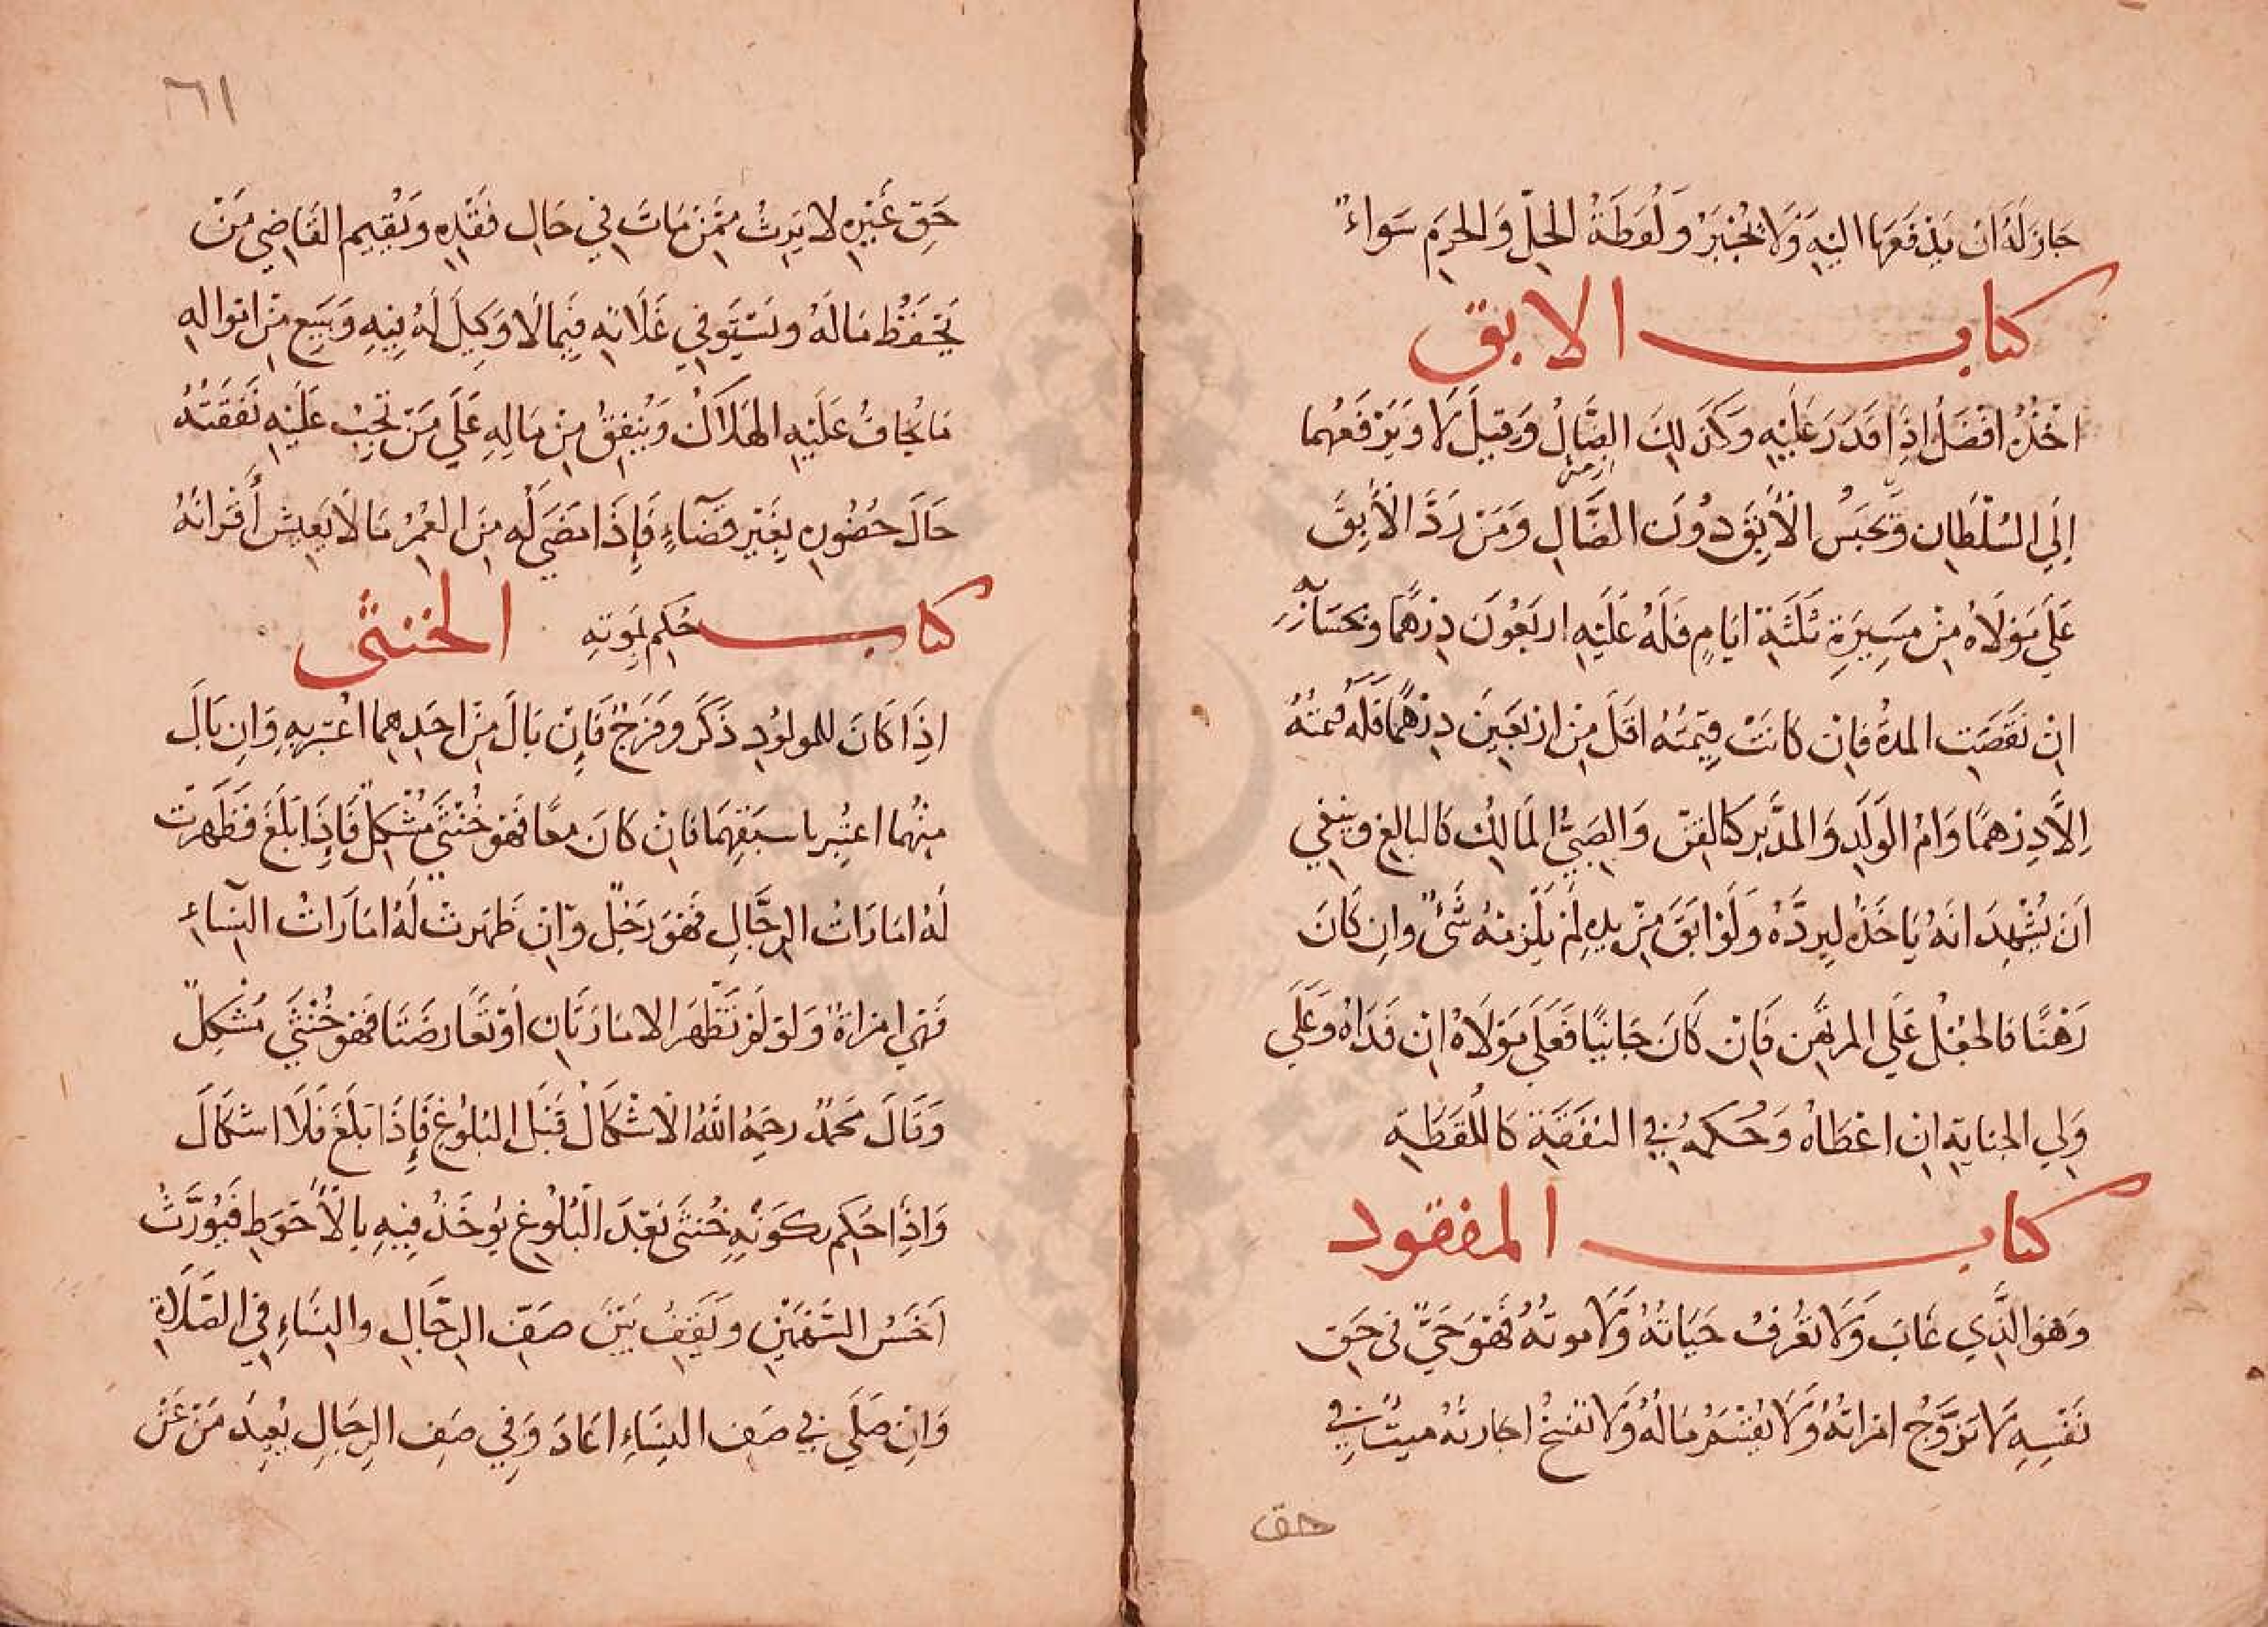 جَازَ لَهُ اَنْ يَدْفَعَهَا اليْهِ وَلَا يُجْبَرُ وَلُقَطَةُ الحِلِّ وَالحرَمِ سَواءٌ
كتاب الابق
اخْذُهُ افْضَلُ اِذَا قَدَرَ عَلَيْهِ وَكَذَلِكَ الضَّالُ وَقِيلَ لَا وَيَرْفَعُهُما
إلَي السُلْطَانِ وَيحْبَسُ الْأٰبِقَ دُونَ الضَّالِ وَمَنْ رَدَّ الْأٰبِقَ
عَلَي مَوْلَاهُ مِنْ مَسِيرَةِ ثَلَثَةِ ايَامٍ فَلَهُ عَلَيْهِ ارَبَعُونَ دِرْهَمًا وبحسَابِهِ
اِنْ نَقَصَتِ المدةُ فَاِنْ كَانَتْ قِيمَتُهُ اقَلَّ مِنْ ارْبَعِينَ دِرْهَمًا فَلَهُ قيمتُهُ
اِلاَّ دِرْهَمًا وَامُ الوَلَدِ وَالمدَّبَر كَالقِنِّ وَالصَبِيُّ المَالِكُ كَالبَالِغِ وينبَغِي
اَن يُشْهِدَ انَهُ يَاخَذُهُ لِيردَّهُ وَلَوْ ابَقَ مِنْ يدِهِ لَمْ يَلْزَمْهُ شَئٌ وَاِن كَانَ
رَهْنًا فالجعْلُ عَلَي المرتَهِن فَاِنْ كَانَ جَانِيًا فَعَلَي مَوْلَاهُ اِنْ فَدَاهُ وَعَلَي
وَلِي الجنايَةِ اِنْ اعْطَاهُ وَحُكمُهُ فِي النفَقَةِ كَاللُقَطَةِ
كتاب المفقود
وَهوَ الَّذِي غَابَ وَلَا تعْرفُ حَيَاتهُ وَلَا موتهُ فَهْوَ حَيٌّ فى حَقِ
نَفْسِهِ لَا تَزَوَّجُ امْرَاتهُ وَلَا يقْسَمُ مَالهُ وَلَا تفسَخُ اجَارتهُ ميتٌ فِي
حق
٦١
حَقِّ غَيْرِهِ لا يَرِثُ مِمَّنْ مَاتَ فِي حَالِ فَقْدِهِ وَيُقِيم القَاضِي مَنْ
يَحْفَظُ مَالَهُ وَيَسْتَوفِي غَلَاتِهِ فِيمَا لَا وَكِيلَ لَهُ فِيهِ وَيَبِيعَ مِنْ امْوَالِهِ
مَا يُخافُ عَلَيْهِ الهَلَاكُ وَيُنْفِقُ مِنْ مَالِهِ عَلَي مَنْ تَجِبُ عَلَيْهِ نَفَقَتهُ
حَالَ حُضُورِهِ بِغَيْرِ قَضَآءٍ فَإِذَا مَضَي لَه مِنَ العُمْرُ مَا لَا يَعِيشُ أقْرَانُهُ
حُكِم بمَوتِهِ
كتاب الخنثى
اِذَا كَانَ للمولُودِ ذَكَر وَفَرَجٌ فَاِنْ بَالَ مِنْ احَدِهِمَا اعْتبرَ بِهِ وَاِن بَالَ
مِنْهُما اعتُبِر باسبَقِهِمَا فَانْ كَانَ معًا فَهوَ خُنثَي مُشْكِلٌ فَإِذَا بَلَغَ فَظَهَرَتْ
لَهُ امَارَاتُ الرِجَّالِ فَهْوَ رَجُلٌ وَاِنْ ظَهَرتْ لَهُ امَارَاتُ النِسَآءِ
فَهْيَ امْرَاةٌ وَلوْ لَمْ تَظْهَر الامَارَتَانِ اَوْ تَعَارضَتَا فَهْوَ خُنْثَي مُشْكِلٌ
وَقَالَ محَمدٌ رحمَهُ اللَّهُ الْاشْكَالُ قَبْلَ البُلوغِ فَإِذَا بَلَغَ فَلَا اشكَالَ
وَاِذَا حكِم بِكوَنِهِ خُنثَى بَعْدَ الْبُلُوغِ يؤخَذُ فِيهِ بِالْأَحْوَطِ فَيُورَّثُ
اَخَسَّ السَهْمَيْنِ وَيَقِفُ بَيْنَ صَفِّ الرِجَالِ والنِسَاءِ فِي الصَلَاةِ
وَاِنْ صَلَي فِي صَفِ النِسَاءِ اعَادَ وَفِي صَفِ الرِجَالِ يُعِيدُ مَنْ عَنْ